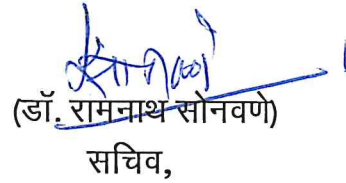 (डॉ. रामनाथ सोनवणे)
सचिव,